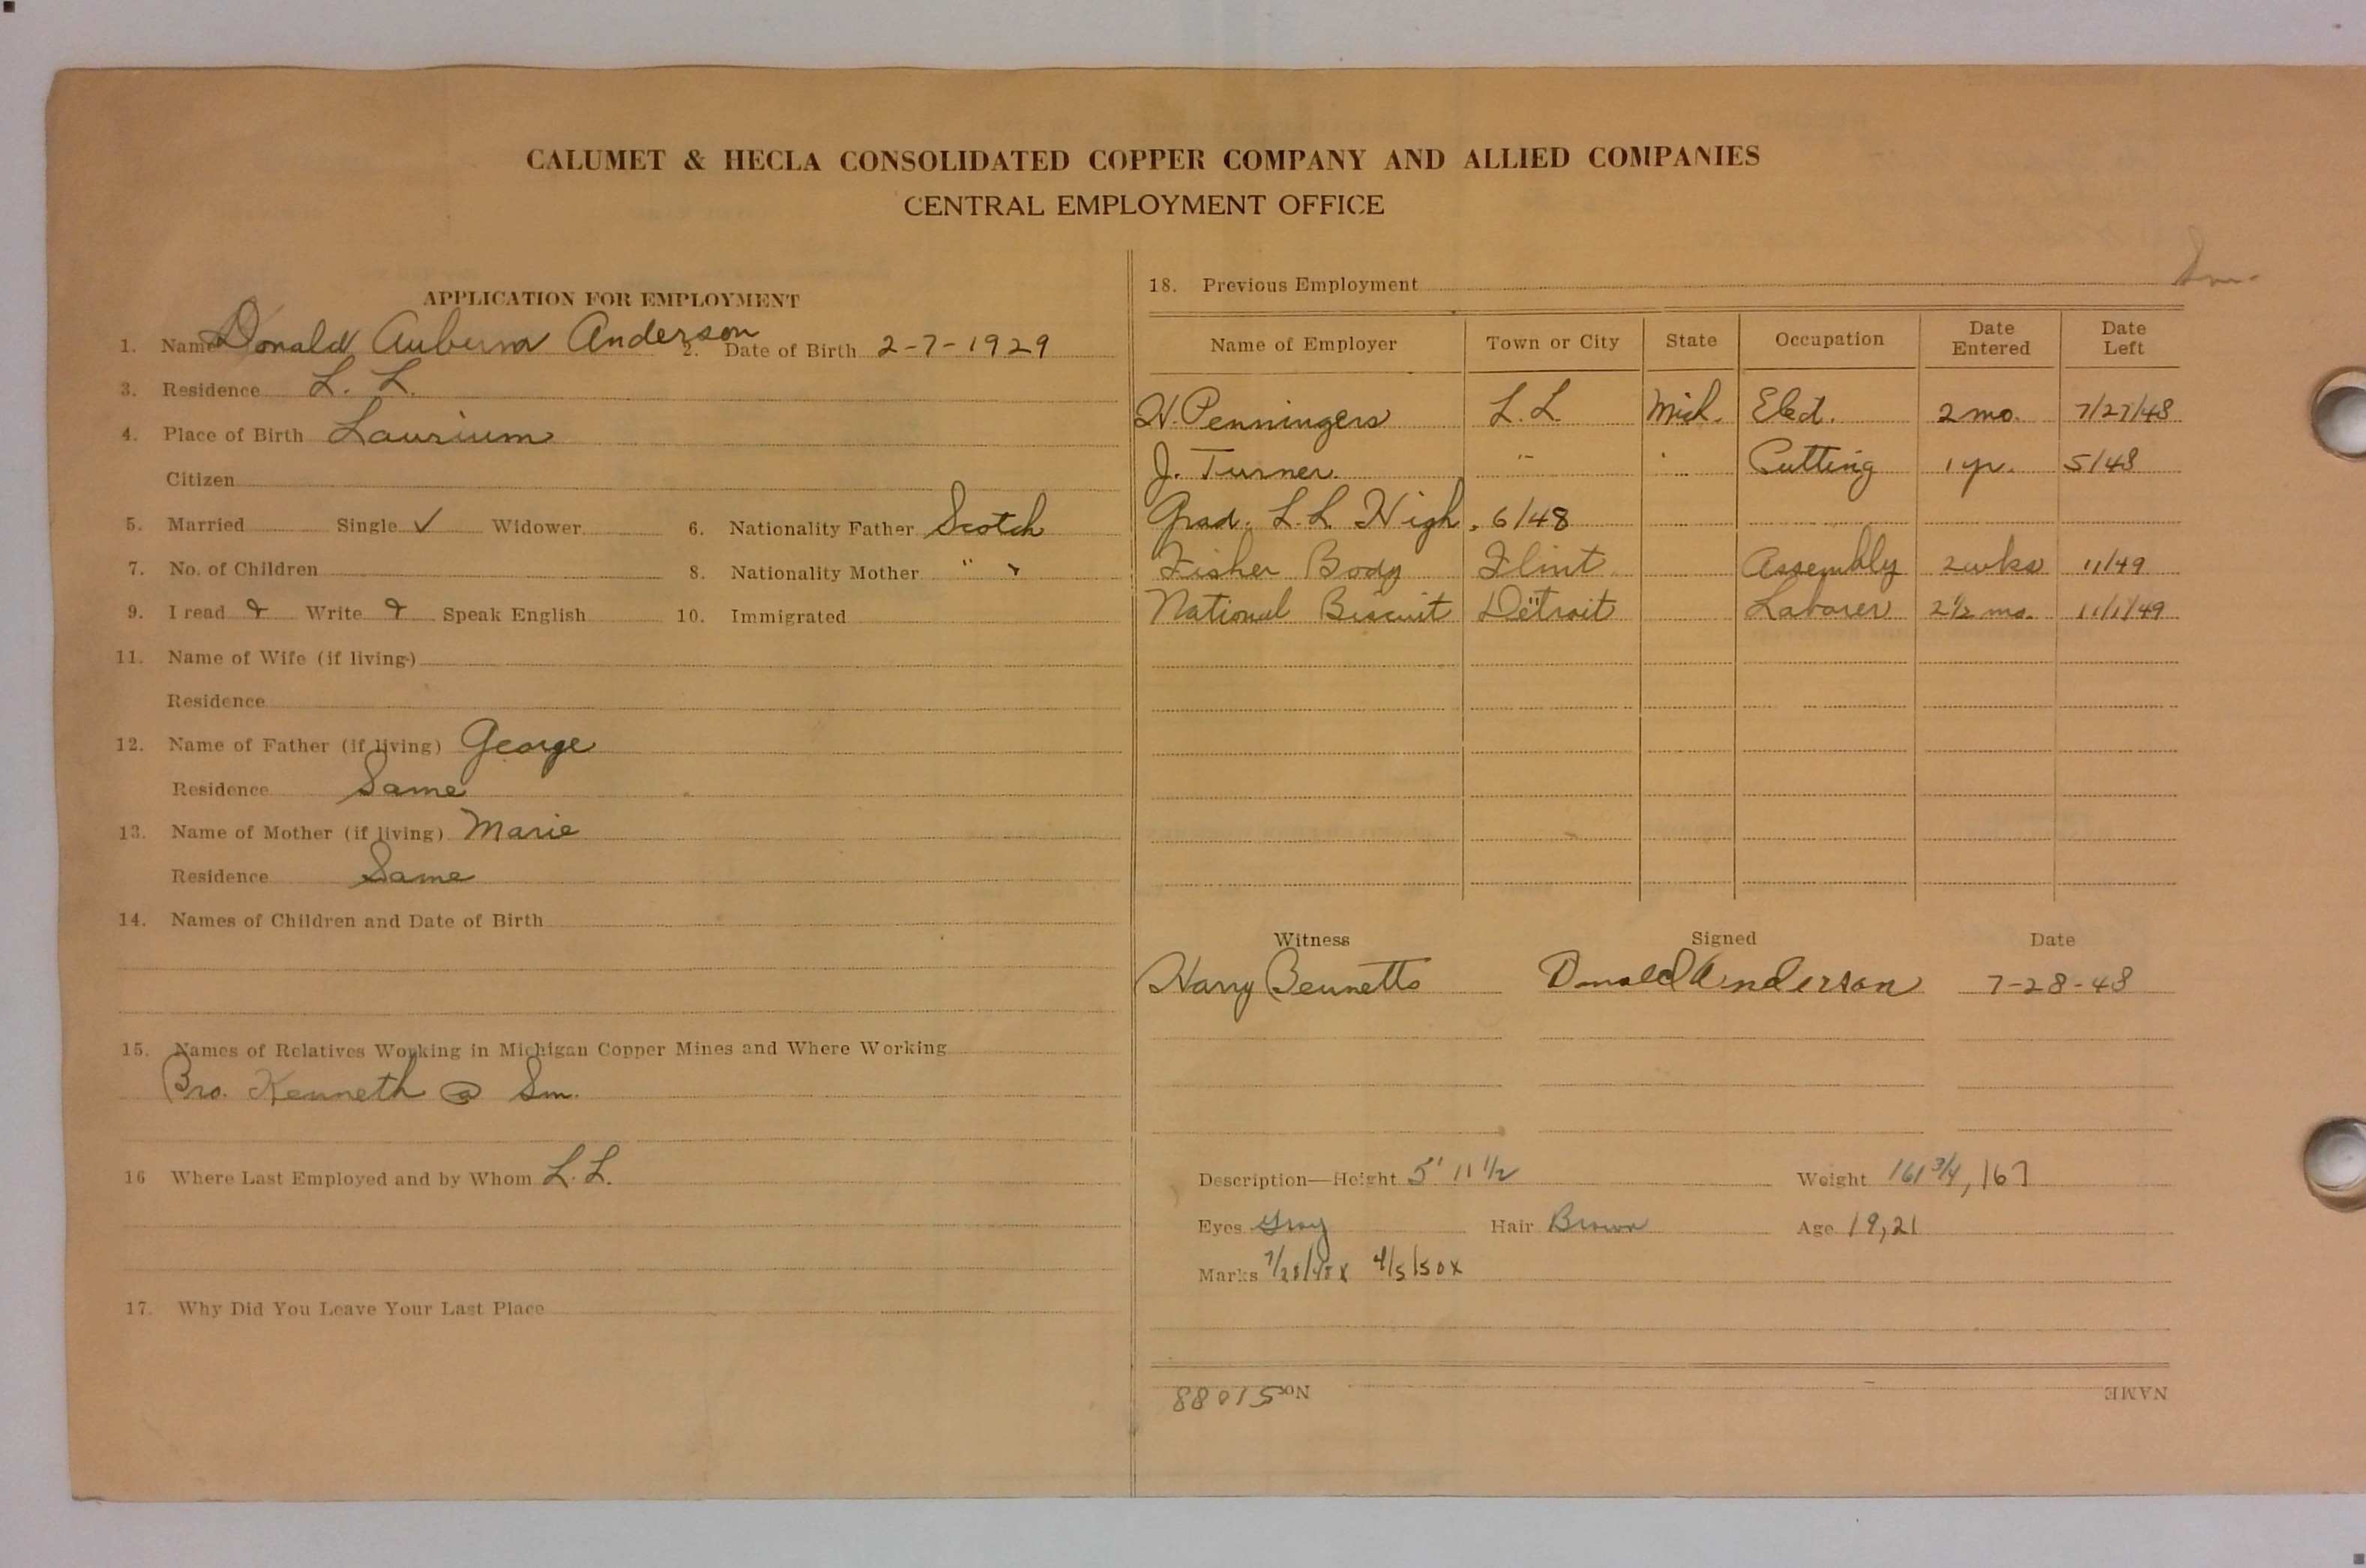 CALUMET & HECLA CONSOLIDATED COPPER COMPANY AND ALLIED COMPANIES
CENTRAL EMPLOYMENT OFFICE
APPLICATION FOR EMPLOYMENT
1. Name Donald Auburn Anderson 2. Date of Birth 2-7-1929
3. Residence L. L.
4. Place of Birth Laurium
Citizen
5. Married Single ✓ Widower 6. Nationality Father Scotch
7. No. of Children 8. Nationality Mother " "
9. I read & Write & Speak English 10. Immigrated
11. Name of Wife (if living)
Residence
12. Name of Father (if living) George
Residence Same
13. Name of Mother (if living) Marie
Residence Same
14. Names of Children and Date of Birth
15. Names of Relatives Working in Michigan Copper Mines and Where Working
Bro. Kenneth @ Sm.
16 Where Last Employed and by Whom L. L.
17. Why Did You Leave Your Last Place
18. Previous Employment Sm.
Name of Employer Town or City State Occupation Date Entered Date Left
H. Penningers L.L. Mich. Elect. 2 mo. 7/27/48
J. Turner " " Cutting 1 yr. 5/48
Grad. L.L. High. 6/48
Fisher Body Flint Assembly 2 wks 11/49
National Biscuit Detroit Laborer 2½ mo. 11/1/49
Witness Signed Date
Harry Bennetts Donald Anderson 7-28-48
Description—Height 5' 11 1/2 Weight 161 3/4, 167
Eyes Gray Hair Brown Age 19, 21
Marks 7/28/48 x 4/5/50 x
No. 88015
NAME